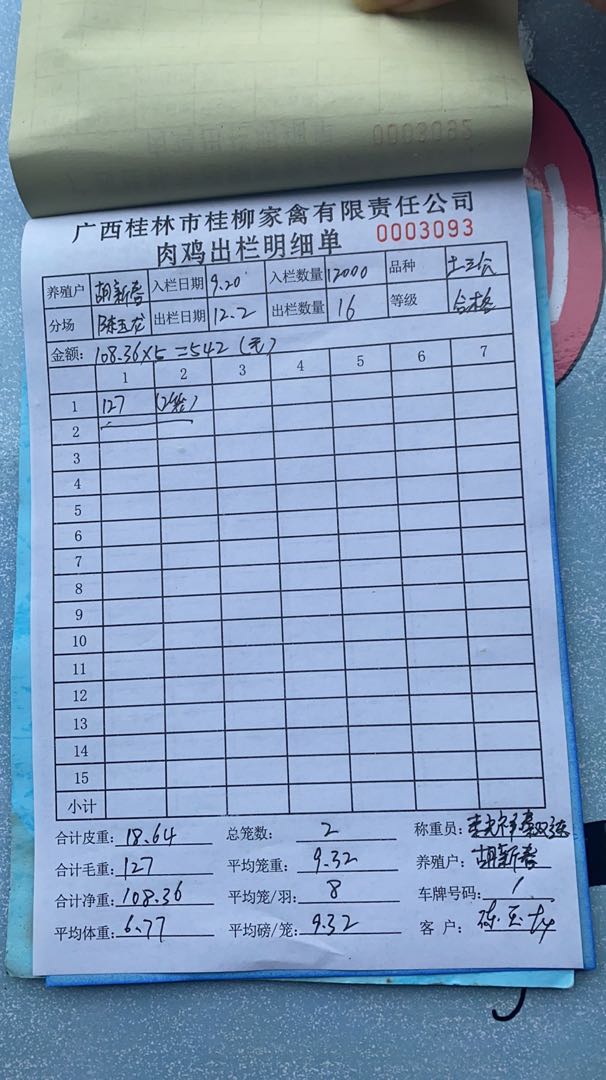 广西桂林市桂柳家禽有限责任公司
肉鸡出栏明细单 0003093
养殖户 胡新春 入栏日期 9.20 入栏数量 12000 品种 土三公
分场 陈玉龙 出栏日期 12.2 出栏数量 16 等级 合格
金额: 108.36×5=542 (元)
1 2 3 4 5 6 7
1 127 (2笼)
2
3
4
5
6
7
8
9
10
11
12
13
14
15
小计
合计皮重: 18.64 总笼数: 2 称重员:
合计毛重: 127 平均笼重: 9.32 养殖户: 胡新春
合计净重: 108.36 平均笼/羽: 8 车牌号码: /
平均体重: 6.77 平均磅/笼: 9.32 客户: 陈玉龙